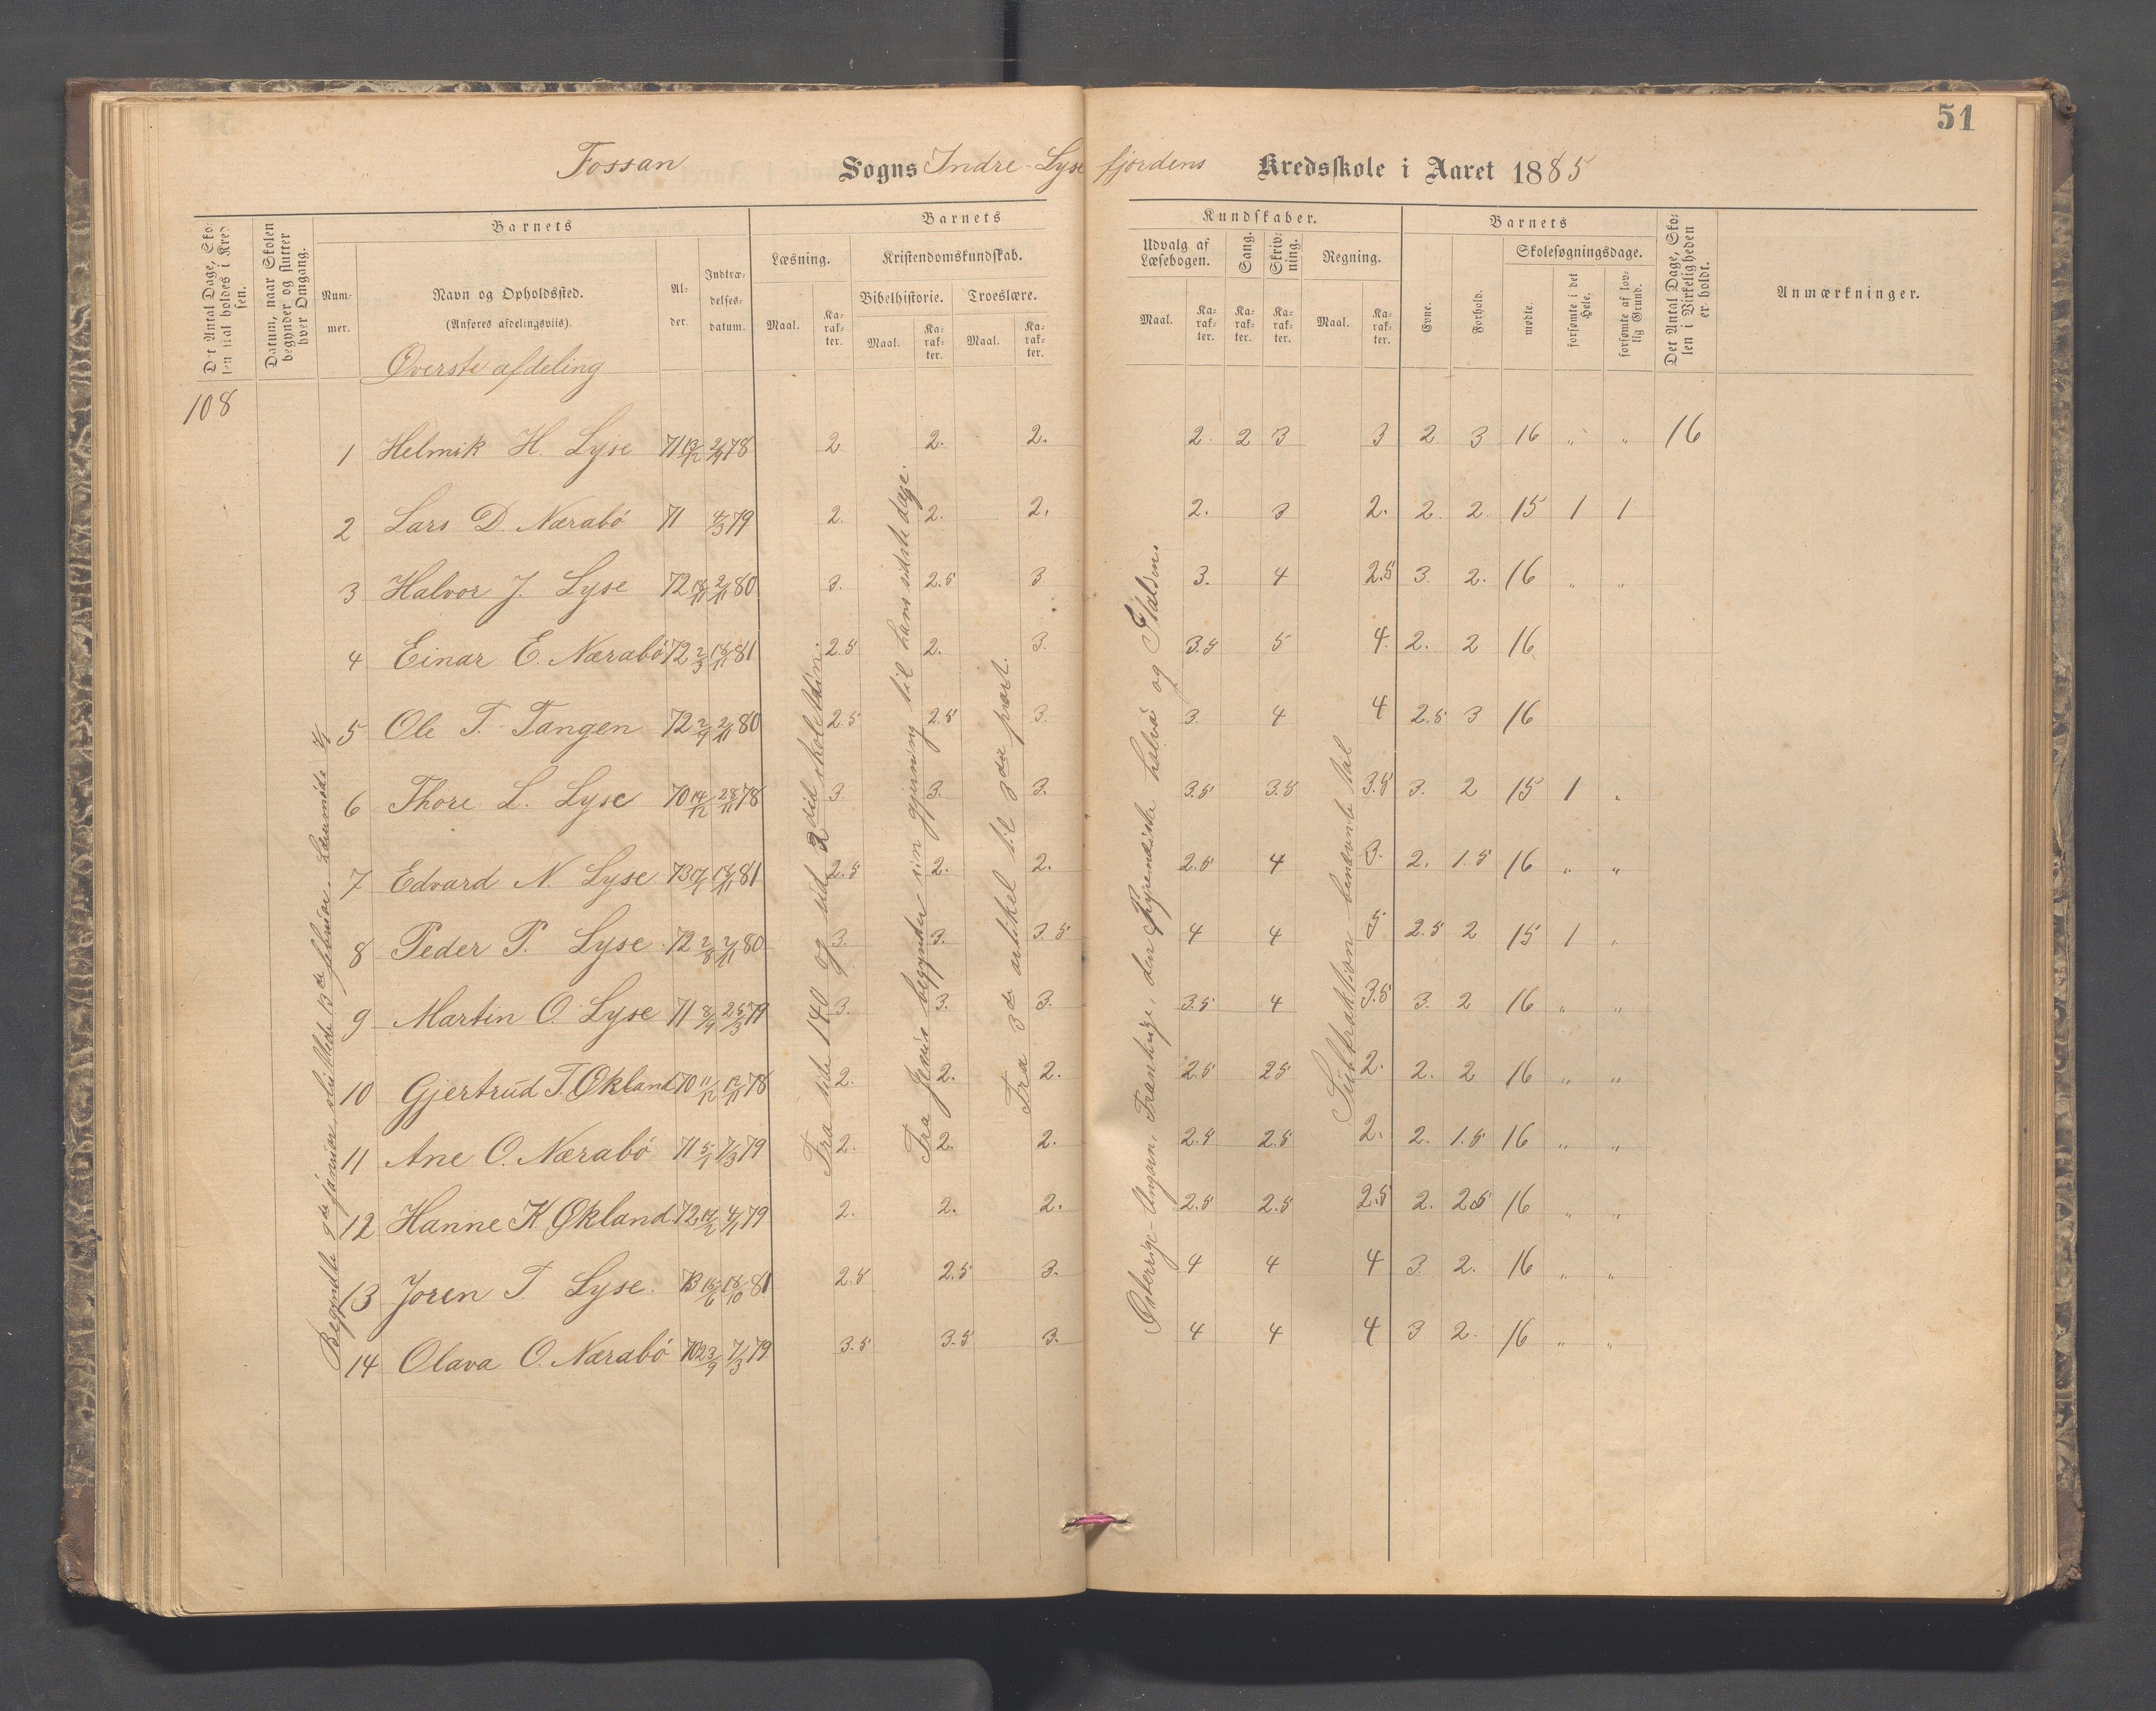 51
Fossan Sogns Indre-Lysefjordens Kredsskole i Aaret 1885
Det Antal Dage, Skolen skal holdes i Kredsen.
Datum, naar Skolen begynder og slutter hver Omgang.
Barnets
Nummer.
Navn og Opholdssted.
(Anføres afdelingsviis).
Alder.
Indtrædelsesdatum.
Barnets Kundskaber.
Læsning.
Maal. Karakter.
Kristendomskundskab.
Bibelhistorie. Troeslære.
Maal. Karakter. Maal. Karakter.
Udvalg af Læsebogen.
Maal. Karakter.
Sang. Karakter.
Skrivning. Karakter.
Regning.
Maal. Karakter.
Barnets
Evne. Forhold.
Skolesøgningsdage.
mødte. forsømte i det Hele. forsømte af lovlig Grund.
Det Antal Dage, Skolen i Virkeligheden er holdt.
Anmærkninger.
Øverste afdeling
108
1 Helmik H. Lyse 71 13/12 2/4 78 2 2. 2. 2. 2 3 3 2 3 16 " " 16
2 Lars D. Nærabö 71 4/3 79 2. 2. 2. 2. 3 2. 2. 2. 15 1 1
3 Halvor J. Lyse 72 18/11 2/11 80 3. 2.5 3 3. 4 2.5 3. 2. 16 " "
4 Einar E. Nærabö 72 2/3 18/11 81 2.5 2. 3. 3.5 5 4. 2. 2 16
5 Ole T. Tangen 72 2/9 2/11 80 2.5 2.5 3. 3. 4 4 2.5 3 16
6 Thore L. Lyse 70 14/12 28/11 78 3. 3. 3. 3.5 3.5 3.5 3. 2 15 1 "
7 Edvard N. Lyse 73 17/1 18/11 81 2.5 2. 2. 2.5 4 3. 2. 1.5 16 " "
8 Peder P. Lyse 72 2/8 2/11 80 3. 3. 3.5 4 4 5 2.5 2 15 1 "
9 Martin O. Lyse 71 8/9 25/3 79 3. 3. 3. 3.5 4 3.5 3. 2 16 " "
10 Gjertrud T. Økland 70 11/12 12/11 78 2. 2. 2. 2.5 25 2. 2. 2 16 " "
11 Ane O. Nærabö 71 5/1 7/3 79 2. 2. 2. 2.5 2.5 2. 2. 1.5 16 " "
12 Hanne K. Økland 72 17/2 4/1 79 2. 2. 2. 2.5 2.5 2.5 2. 2.5 16 " "
13 Joren T. Lyse. 73 15/6 18/10 81 2.5 2.5 3. 4 4 4 3 2. 16 " "
14 Olava O. Nærabö 70 23/9 7/3 79 3.5 3.5 3. 4 4 4 3 2. 16 " "
Begyndte 9de januar, sluttede 13de februar.
Fra side 140 og ud 2
Fra Jesus begynder sin gjerning til hans sidste dage.
Fra 3de artikel til 3die part.
Østerrige-Ungarn, Frankrige, den Pyrenæiske halvö og Italien.
Subtraktion benævnte tal